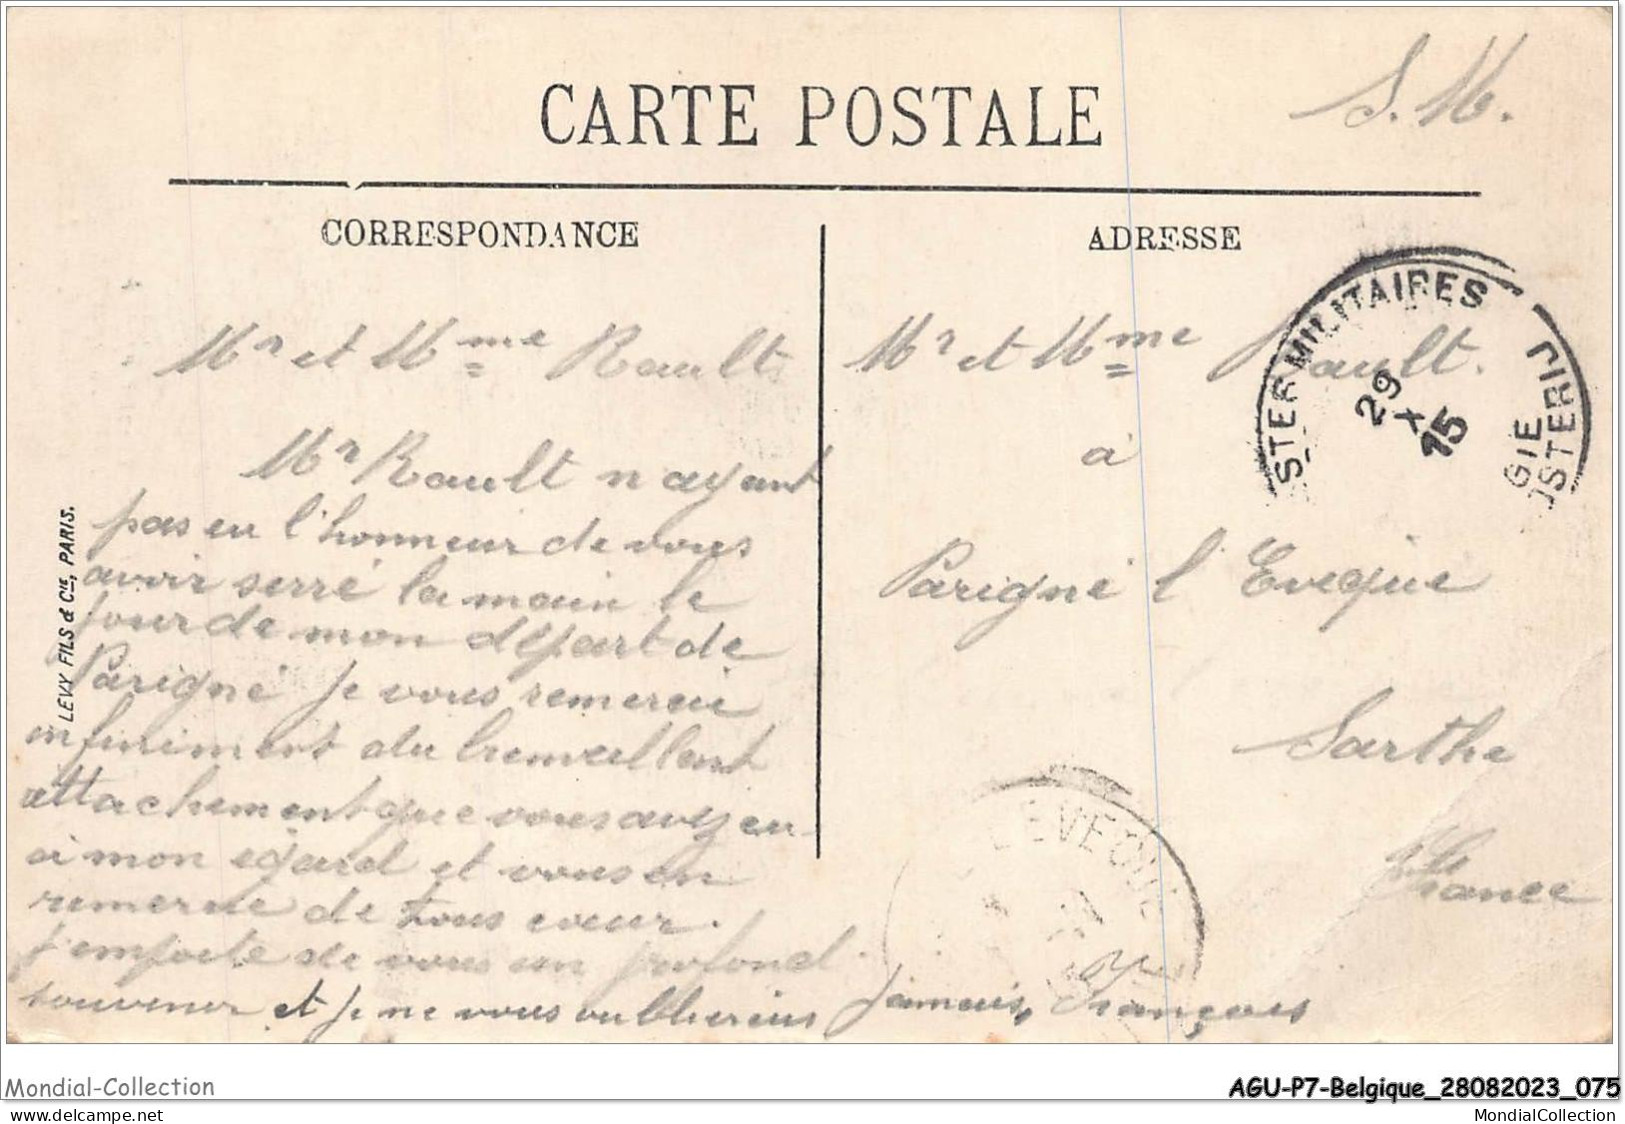 S. M.
CARTE POSTALE
CORRESPONDANCE
ADRESSE
Mr et Mme Rault
Mr Rault n ayant
pas eu l'honneur de vous
avoir serré la main le
jour de mon départ de
Parigné je vous remercie
infiniment du bienveillant
attachement que vous avez eu
a mon egard et vous en
remercie de tous cœur.
J'emporte de vous un profond
souvenir et je ne vous oublierais jamais, François
Mr et Mme Rault.
a
Parigné l Eveque
Sarthe
France
POSTERIJ
29 X 15
L'EVEQUE
LEVY FILS & Cie, PARIS.
Mondial-Collection
AGU-P7-Belgique_28082023_075
www.delcampe.net
MondialCollection